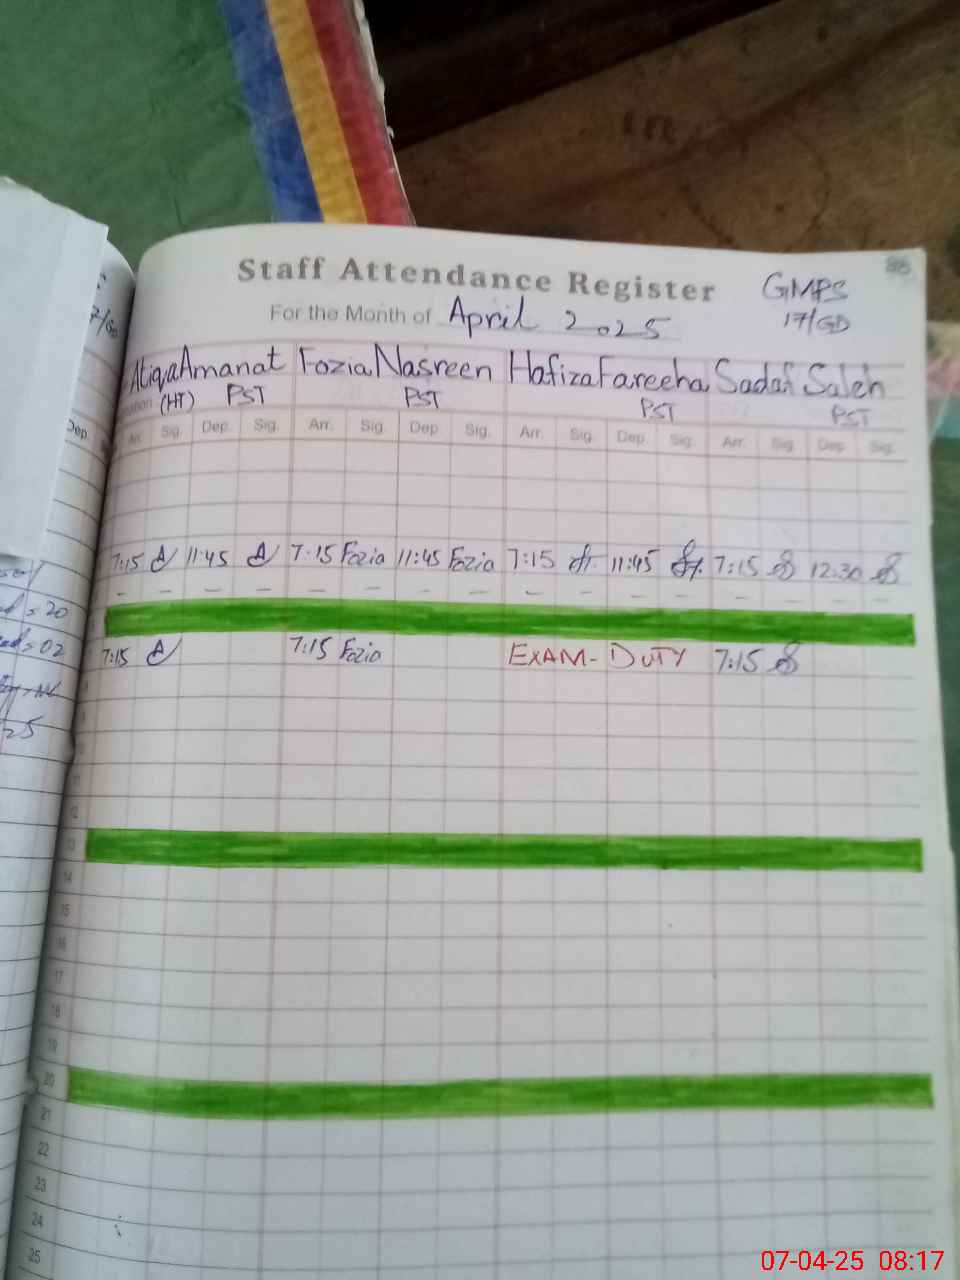 86
Staff Attendance Register
GMPS
For the Month of April 2025
17/GD
7/GD
Atiqa Amanat Fozia Nasreen Hafiza Fareeha Sadaf Saleh
(HT) PST PST PST PST
Dep. Arr. Sig. Dep. Sig. Arr. Sig. Dep. Sig. Arr. Sig. Dep. Sig. Arr. Sig. Dep. Sig.
7:15 11:45 7:15 Fozia 11:45 Fozia 7:15 11:45 7:15 12:30
- - - - - - - - - - - - - - - -
= 20
= 02
7:15 7:15 Fozia EXAM - DUTY 7:15
25
11
12
13
14
15
16
17
18
19
20
21
22
23
24
25
07-04-25 08:17